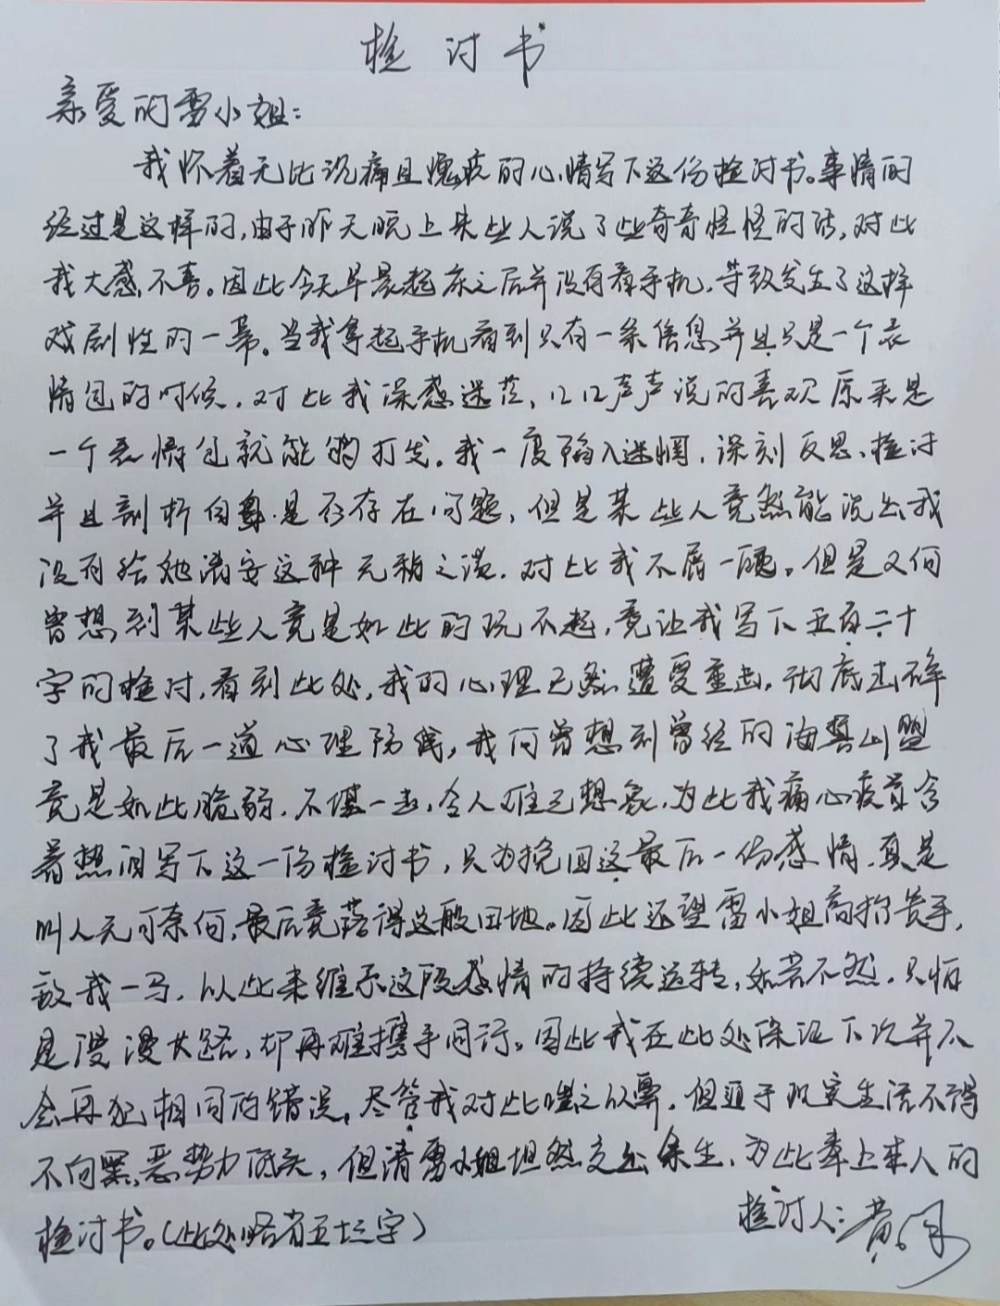 检讨书
亲爱的雷小姐：
我怀着无比沉痛且愧疚的心情写下这份检讨书。事情的
经过是这样的，由于昨天晚上某些人说了些奇奇怪怪的话，对此
我大感不喜。因此今天早晨起床之后并没有看手机，导致发生了这样
戏剧性的一幕。当我拿起手机看到只有一条信息并且只是一个表
情包的时候，对此我深感迷茫，口口声声说的喜欢原来是
一个表情包就能够打发。我一度陷入迷惘，深刻反思、检讨
并且剖析自身是否存在问题，但是某些人竟然能说出我
没有给她消安这种无稽之谈，对此我不屑一顾。但是又何
曾想到某些人竟是如此的玩不起，竟让我写下五百二十
字的检讨，看到此处，我的心理已然遭受重击，彻底击碎
了我最后一道心理防线，我何曾想到曾经的海誓山盟
竟是如此脆弱，不堪一击，令人难已想象，为此我痛心疾首含
着热泪写下这一份检讨书，只为挽回这最后一份感情，真是
叫人无可奈何，最后竟落得这般田地。因此还望雷小姐高抬贵手，
放我一马，以此来维系这段感情的持续运转，如若不然，只怕
是漫漫大路，却再难携手同行。因此我在此处保证下次并不
会再犯相同的错误，尽管我对此嗤之以鼻，但迫于现实生活不得
不向黑恶势力低头，但请雷小姐坦然交出余生，为此奉上本人的
检讨书。（此处略省五十三字）
检讨人：黄